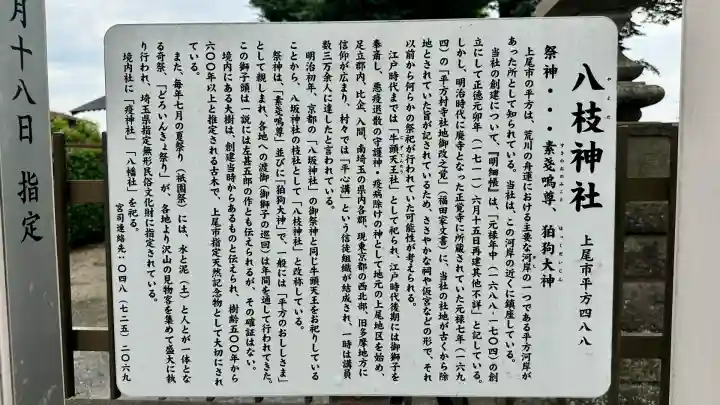 八枝神社
やえだ
上尾市平方四八八
祭神・・・素戔嗚尊、狛狗大神
すさのおのみこと
はくくだいじん
上尾市の平方は、荒川の舟運における主要な河岸の一つである平方河岸が
あった所として知られている。当社は、この河岸の近くに鎮座している。
当社の創建について、『明細帳』は、「元禄年中（一六八八-一七〇四）の創
立にして正徳元卯年（一七一一）六月十五日再建其他不詳」と記している。
しかし、明治時代に廃寺となった正覚寺に所蔵されていた元禄七年（一六九
四）の「平方村寺社地御改之覚」（福田家文書）に、当社の社地が古くから除
地とされていた旨が記されているため、ささやかな祠や仮宮などの形で、それ
以前から何らかの祭祀が行われていた可能性が考えられる。
江戸時代までは「牛頭天王社」として祀られ、江戸時代後期には御獅子を
奉斎し、悪疫退散の守護神・疫病除けの神として地元の上尾地区を始め、
足立郡内、比企、入間、南埼玉の県内各郡、現東京都の西北部、旧多摩地方に
信仰が広まり、村々では「平心講」という信徒組織が結成され、一時は講員
数三万余人に達したと言われている。
明治初年、京都の「八坂神社」の御祭神と同じ牛頭天王をお祀りしている
ことから、八坂神社の枝社として「八枝神社」と改称している。
祭神は、「素戔嗚尊」並びに「狛狗大神」で、一般には「平方のおししさま」
として親しまれ、各地への渡御（御獅子の巡回）は年間を通して行われてきた。
この獅子頭は一説には左甚五郎の作とも伝えられるが、その確証はない。
境内にある大樹は、創建当時からあるものと伝えられ、樹齢五〇〇年から
六〇〇年以上と推定される古木で、上尾市指定天然記念物として大切にされ
ている。
また、毎年七月の夏祭り（祇園祭）には、水と泥（土）と人とが一体とな
る奇祭、「どろいんきょ祭り」が、各地より沢山の見物客を集めて盛大に執
り行われ、埼玉県指定無形民俗文化財に指定されている。
境内社に「疫神社」「八幡社」を祀る。
宮司連絡先：〇四八（七二五）二〇六九
月十八日 指定